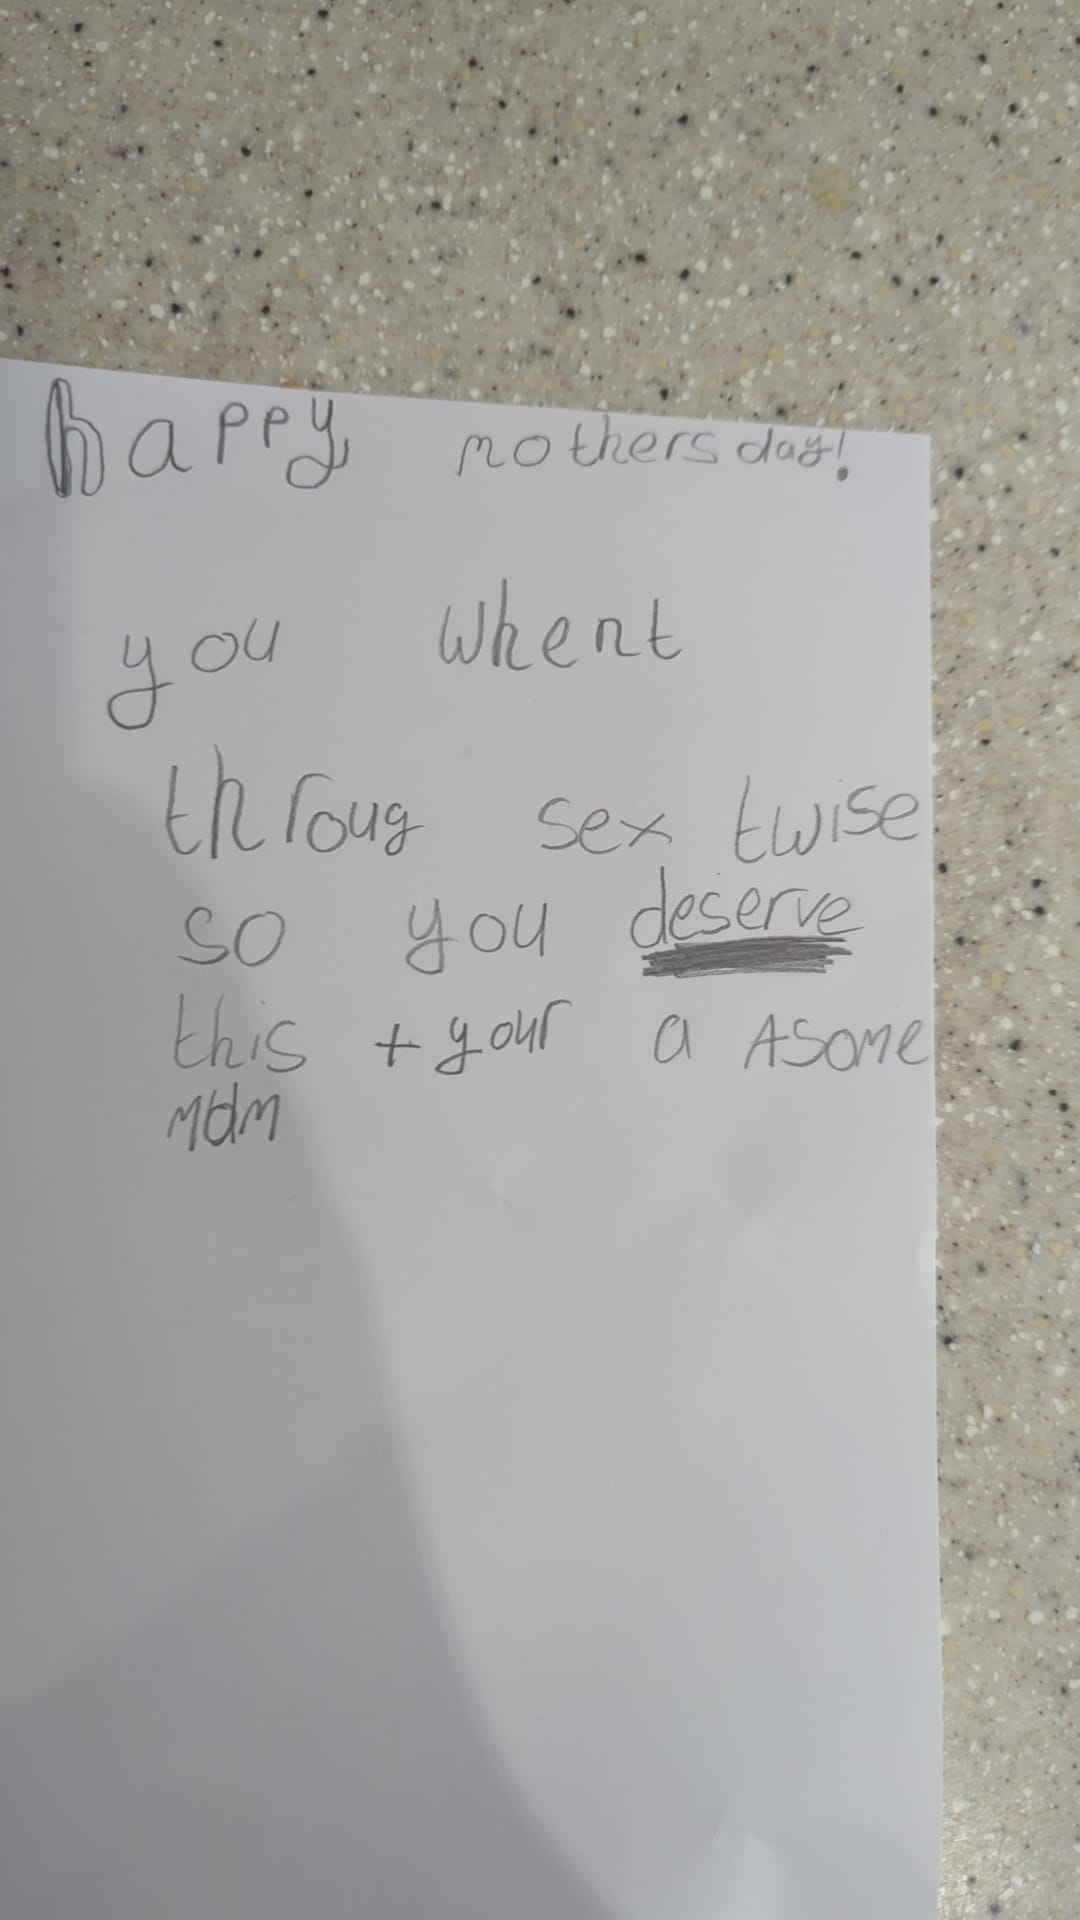 happy mothers day!
you whent
throug sex twise
so you deserve
this + your a Asome
mom